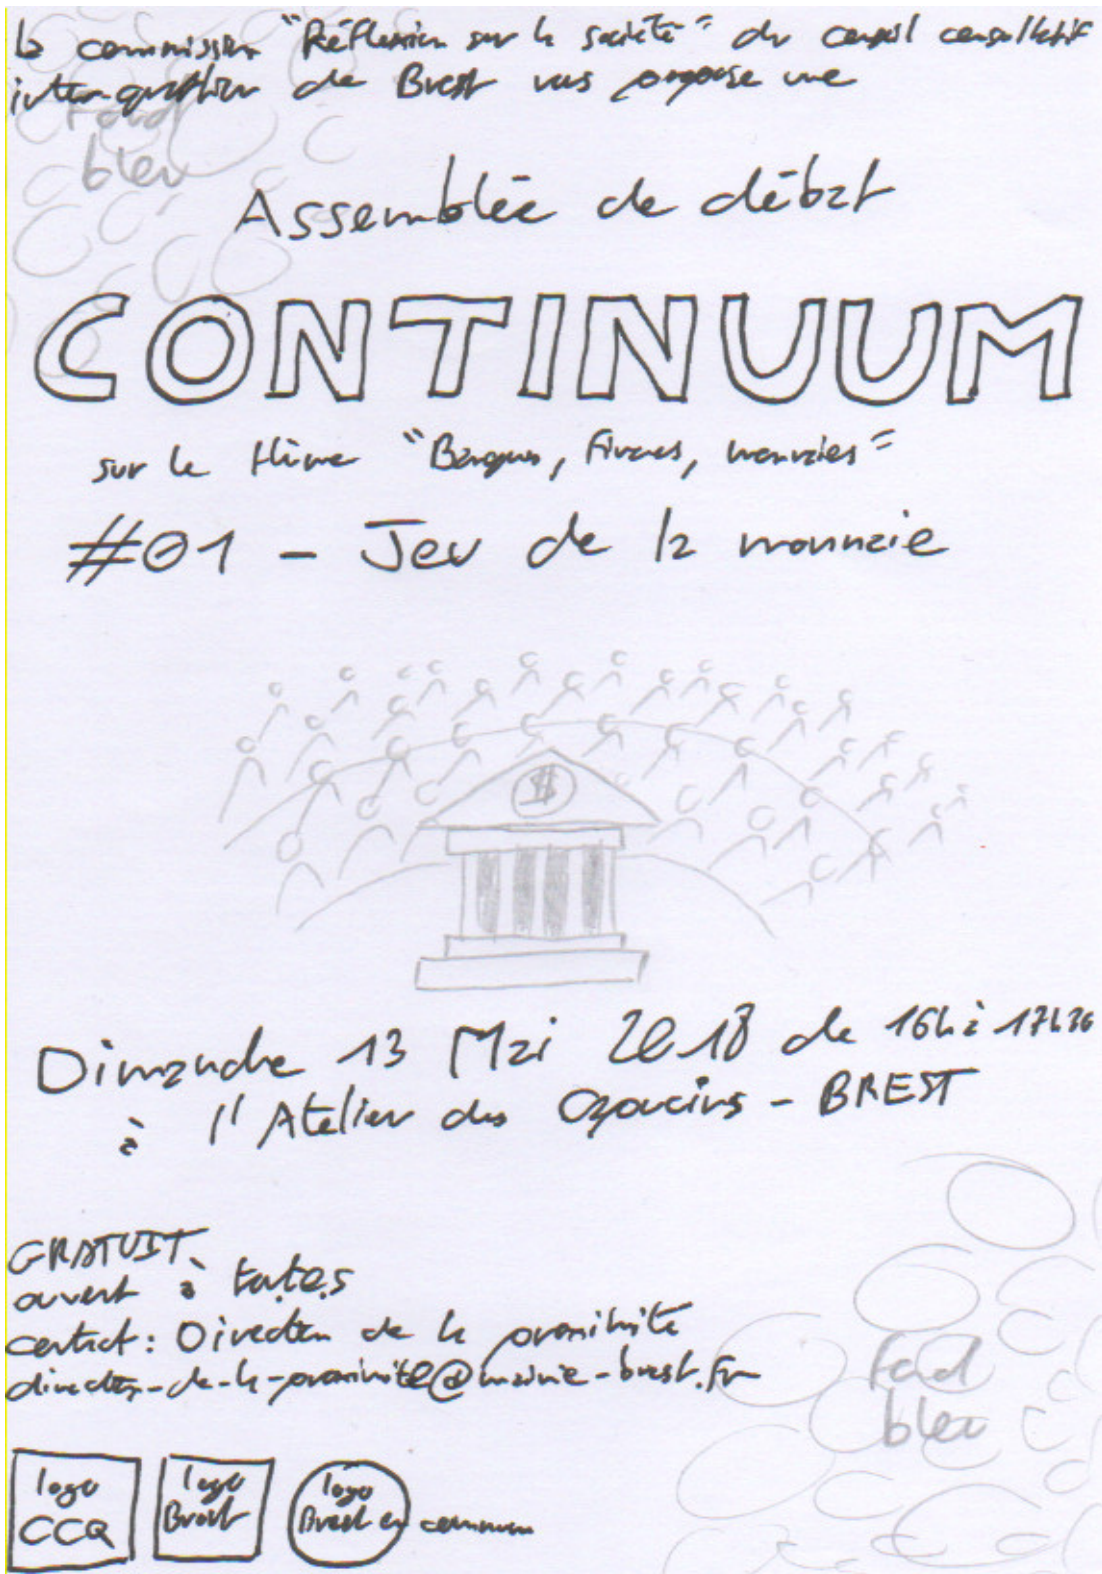 la commission "Réflexion sur la société" du conseil consultatif
inter-quartier de Brest vous propose une
Fond
bleu
Assemblée de débat
CONTINUUM
sur le thème "Banques, finances, monnaies"
#01 - Jeu de la monnaie
$
Dimanche 13 Mai 2018 de 16h à 17h36
à l'Atelier des Capucins - BREST
GRATUIT
ouvert à toutes
contact : Direction de la proximité
direction-de-la-proximité@mairie-brest.fr
Fond
bleu
logo
CCQ
logo
Brest
logo
Brest en commun